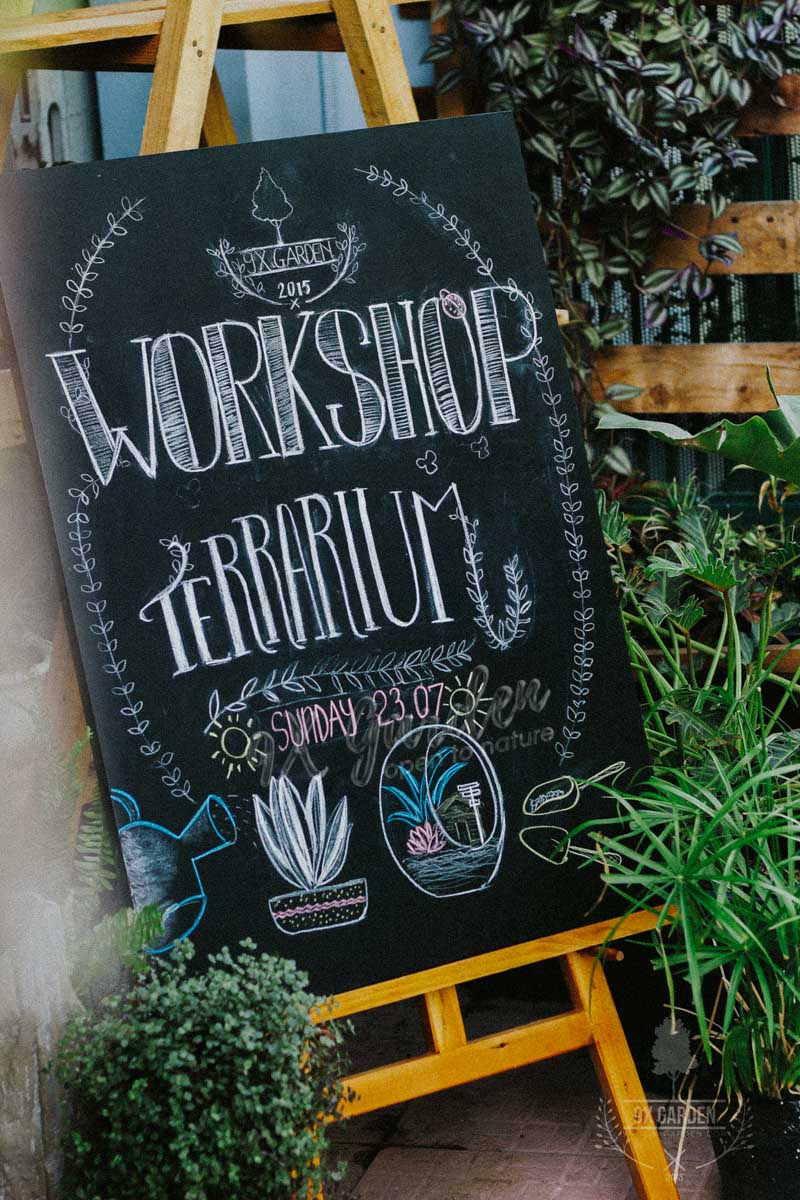 9X GARDEN
2015
WORKSHOP
TERRARIUM
SUNDAY 23.07
9X Garden
open to nature
9X GARDEN
2015